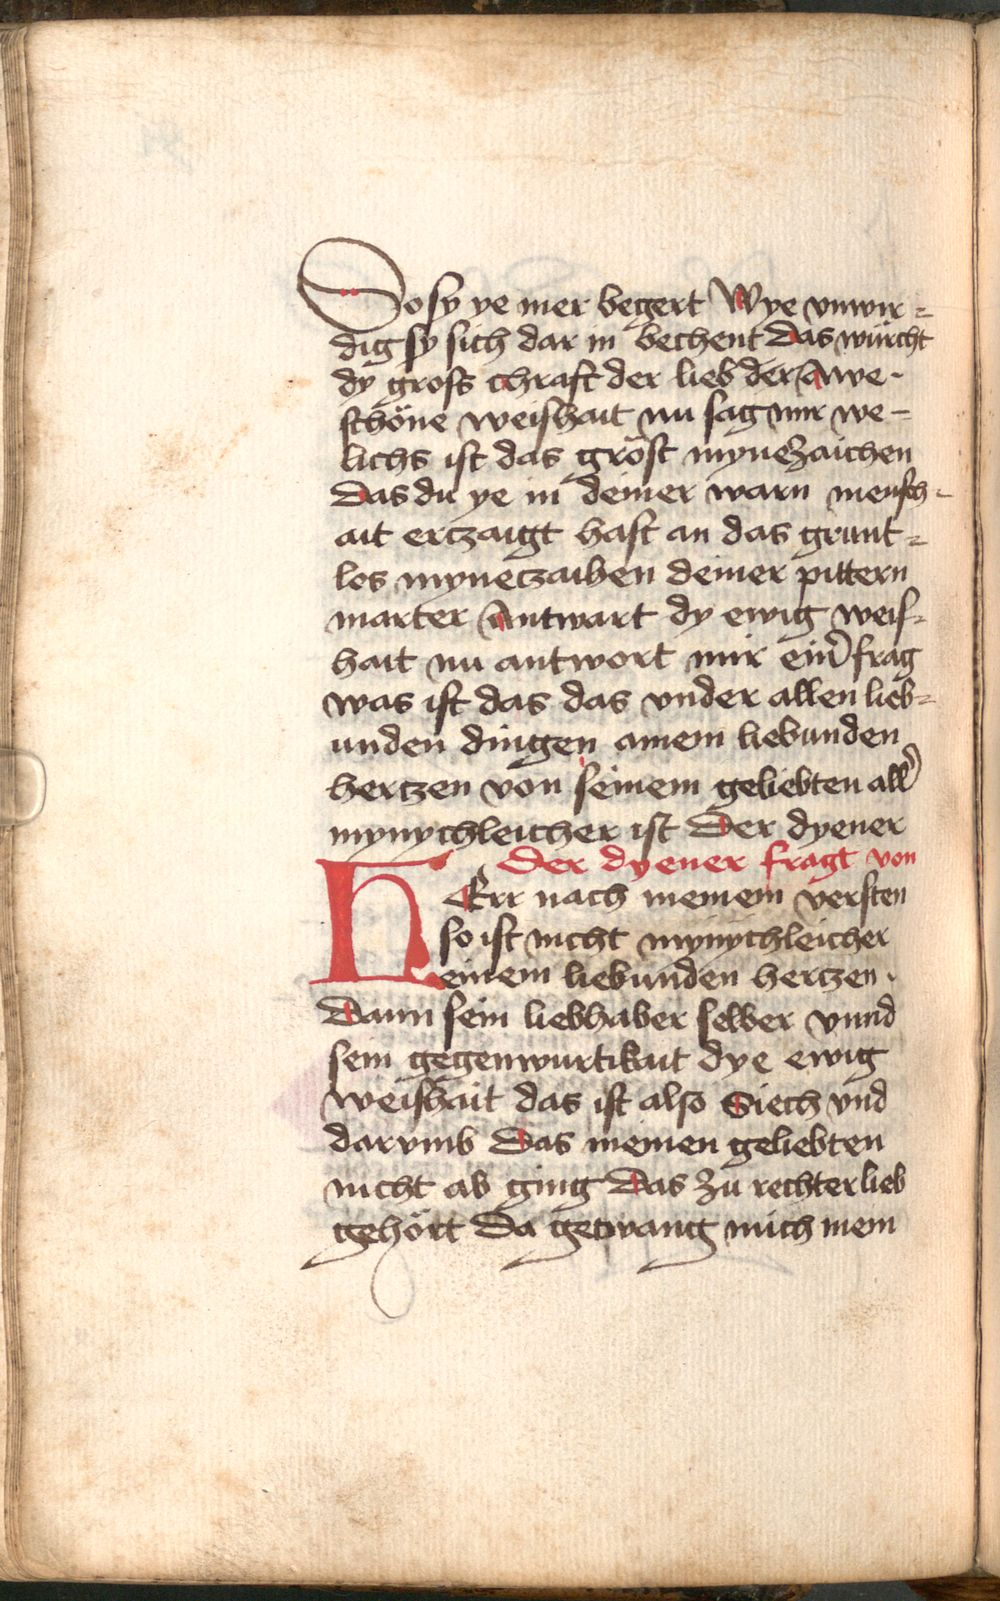 So sy ye mer begert Wye vnwir=
dig sy sich dar in bechent Das würcht
dy gross chraft der lieb der Awe·
schöne weishait nu sag mir we-
lichs ist das gröst mynezaichen
Das du ye in deiner warn mensch-
ait erczaigt hast an das grunt=
les myneczaihen deiner pittern
marter Antwart dy ewig weis-
hait nu antwort mir einr̉ frag
was ist das das vnder allen lieb=
unden dingen ainem liebunden
herczen von seinem geliebten all̉
mynychleicher ist Der dyener
Der dyener fragt von
HErr nach meinem versten
so ist nicht mynychleicher
einem liebunden herczen·
Dann sein liebhaber selber vnnd
sein gegenwurtikait dye ewig
weishait das ist also Siech vnd
darvmb Das meinen geliebten
nicht ab ging Das zu rechter lieb
gehört Da getwang mich mein